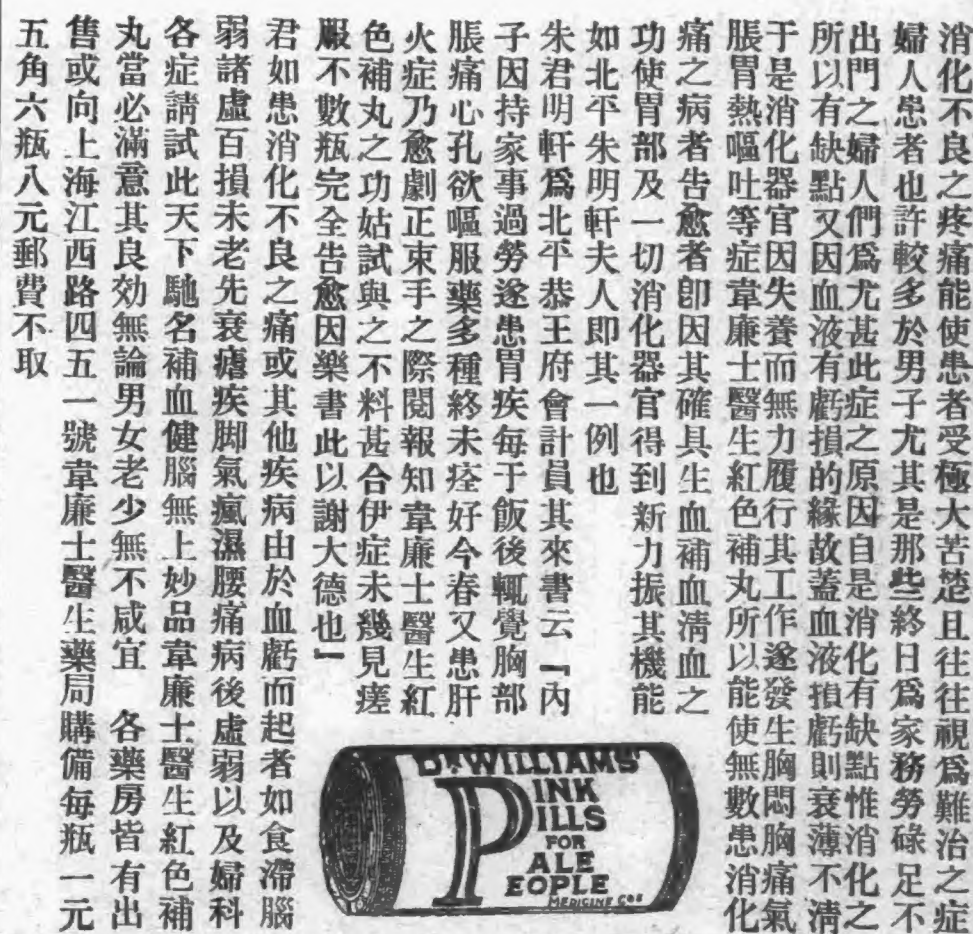 消化不良之疼痛能使患者受極大苦楚且往往視爲難治之症
婦人患者也許較多於男子尤其是那些終日爲家務勞碌足不
出門之婦人們爲尤甚此症之原因自是消化有缺點惟消化之
所以有缺點又因血液有虧損的緣故蓋血液損虧則衰薄不清
于是消化器官因失養而無力履行其工作遂發生胸悶胸痛氣
脹胃熱嘔吐等症韋廉士醫生紅色補丸所以能使無數患消化
痛之病者告愈者卽因其確具生血補血清血之
功使胃部及一切消化器官得到新力振其機能
如北平朱明軒夫人即其一例也
朱君明軒爲北平恭王府會計員其來書云『內
子因持家事過勞遂患胃疾每于飯後輒覺胸部
脹痛心孔欲嘔服藥多種終未痊好今春又患肝
火症乃愈劇正束手之際閱報知韋廉士醫生紅
色補丸之功姑試與之不料甚合伊症未幾見瘥
服不數瓶完全告愈因樂書此以謝大德也』
君如患消化不良之痛或其他疾病由於血虧而起者如食滯腦
弱諸虛百損未老先衰瘧疾脚氣瘋濕腰痛病後虛弱以及婦科
各症請試此天下馳名補血健腦無上妙品韋廉士醫生紅色補
丸當必滿意其良効無論男女老少無不咸宜 各藥房皆有出
售或向上海江西路四五一號韋廉士醫生藥局購備每瓶一元
五角六瓶八元郵費不取
DR WILLIAMS'
PINK
PILLS
FOR
PALE
PEOPLE
MEDICINE Co